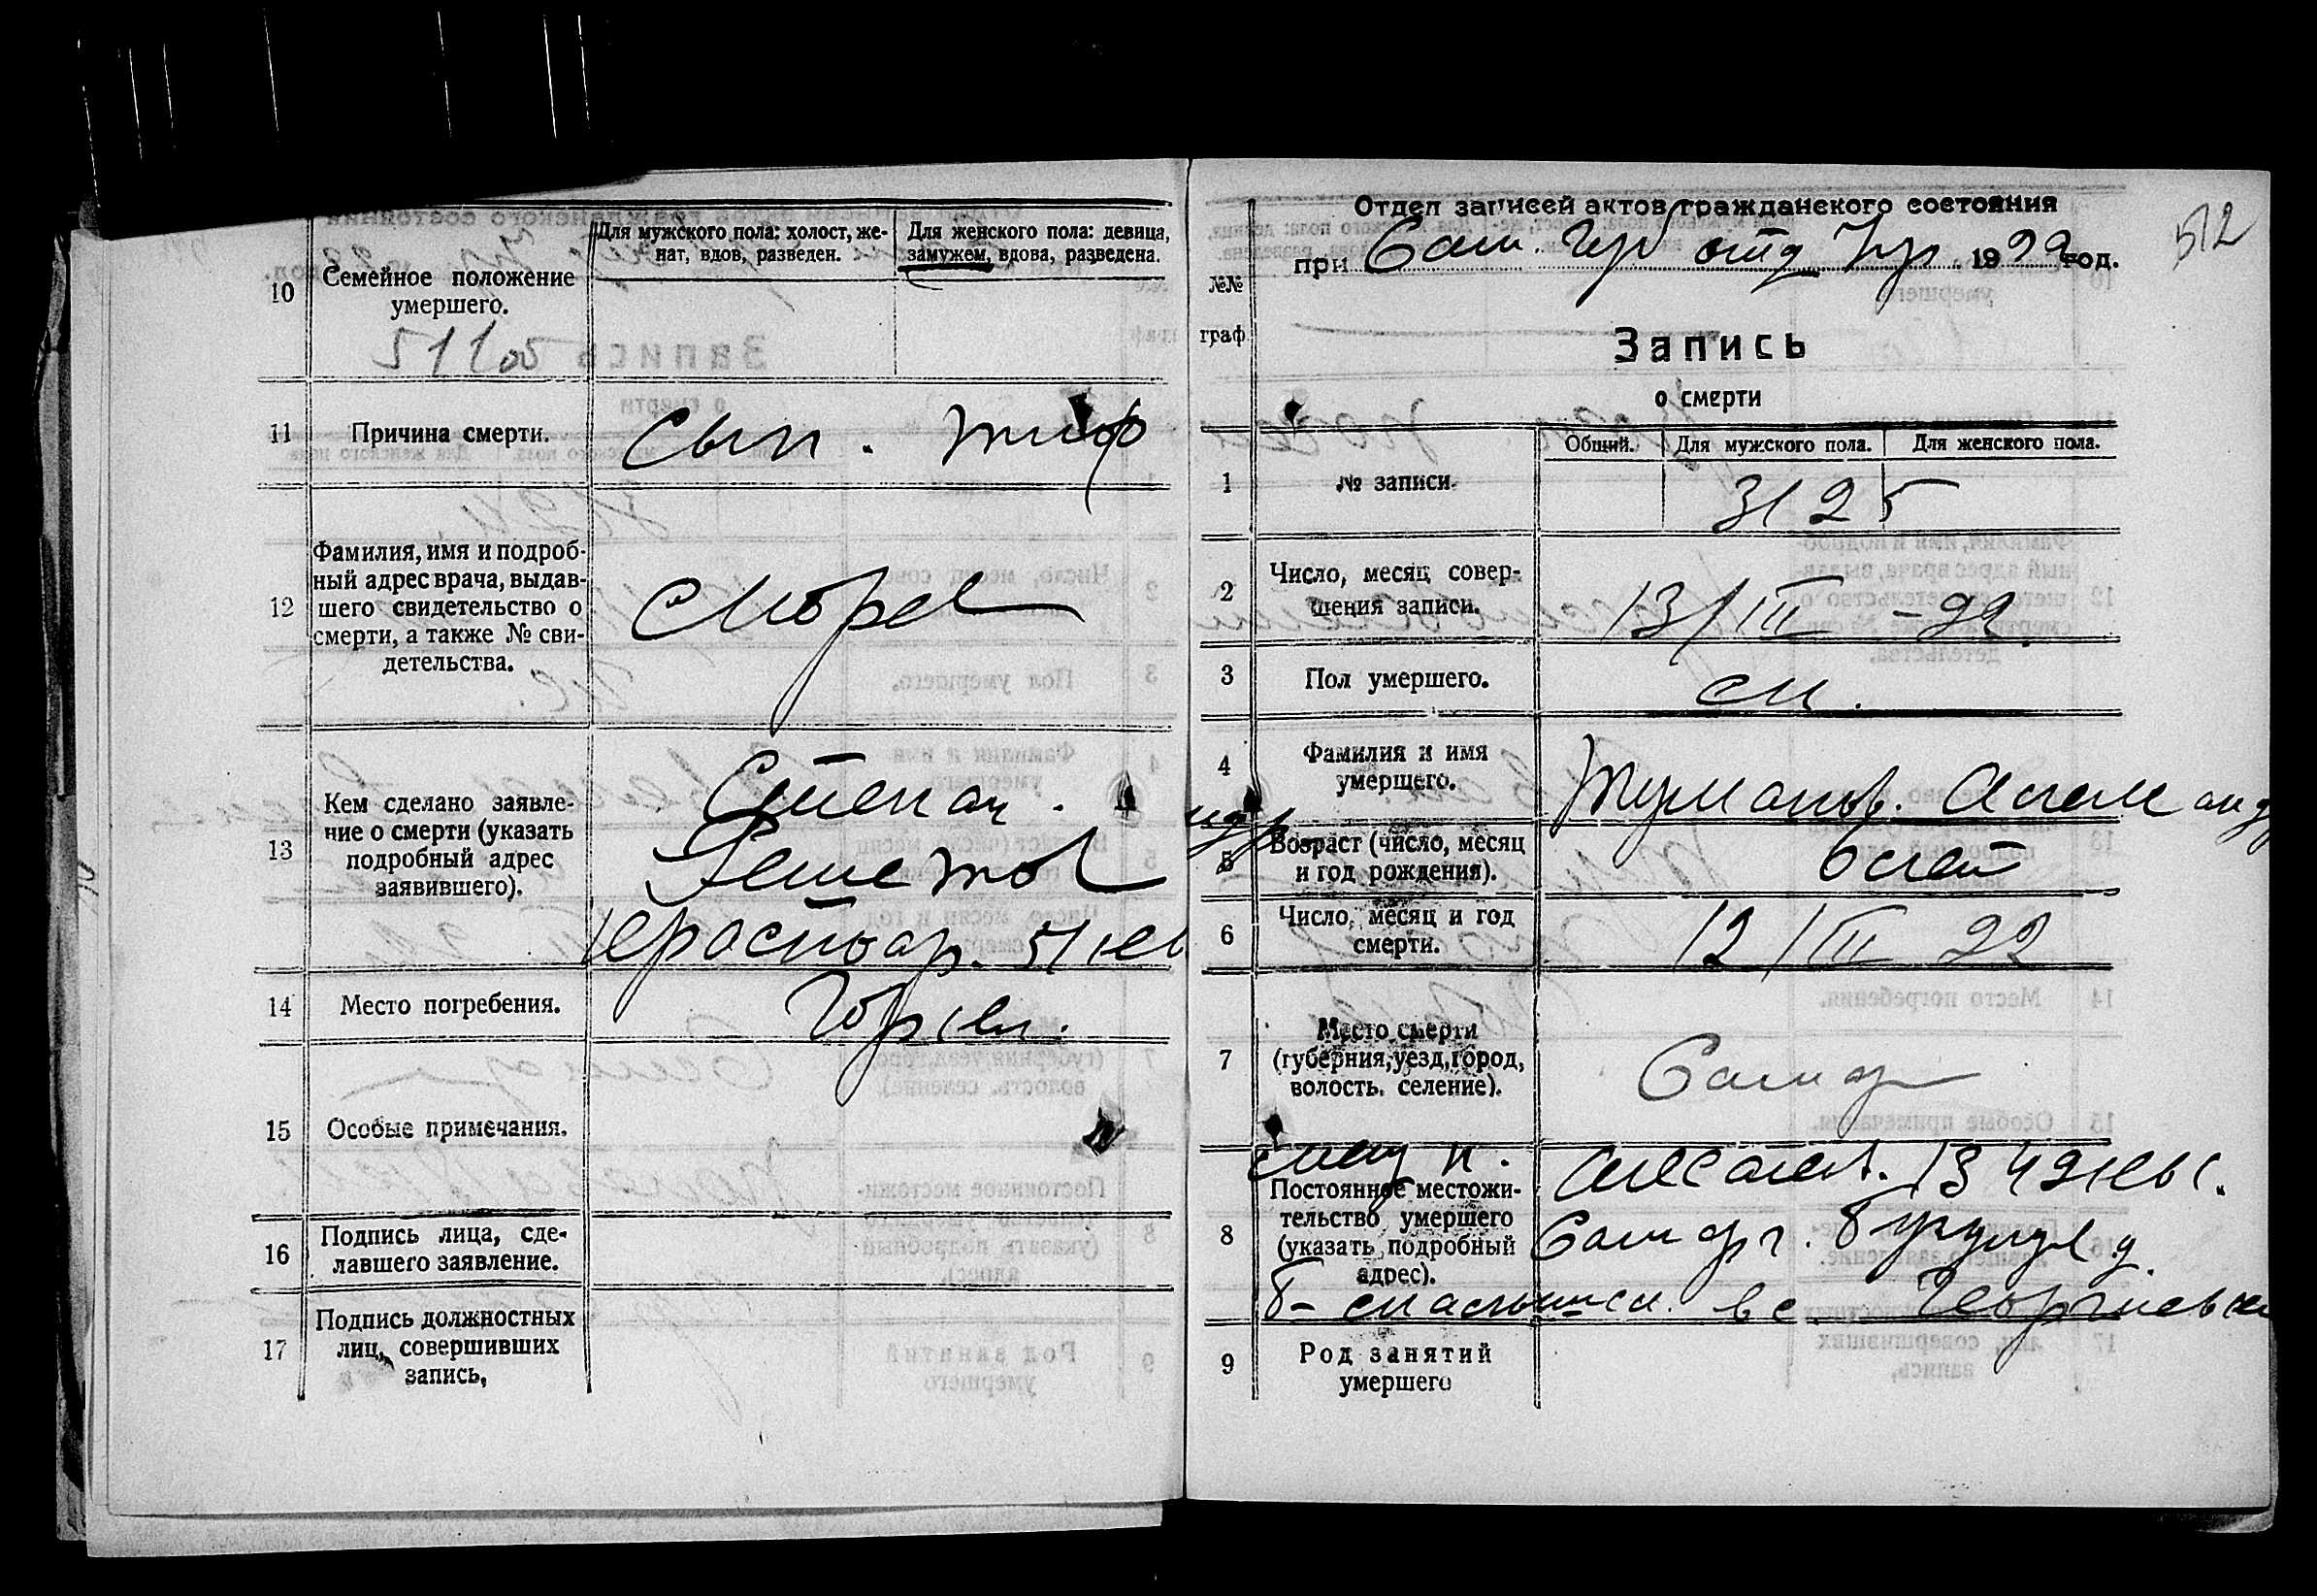 10
Семейное положение
умершего.
Для мужского пола: холост, же-
нат, вдов, разведен.
Для женского пола: девица,
замужем, вдова, разведена.
51
11
Причина смерти.
Сып. тиф
12
Фамилия, имя и подроб-
ный адрес врача, выдав-
шего свидетельство о
смерти, а также № сви-
детельства.
13
Кем сделано заявле-
ние о смерти (указать
подробный адрес
заявившего).
Степан.
Решетов
Красноар. 51 кв
14
Место погребения.
15
Особые примечания.
16
Подпись лица, сде-
лавшего заявление.
17
Подпись должностных
лиц, совершивших
запись,
Отдел записей актов гражданского состояния
при Сам. Губ отд Упр 1922 год.
512
№№
граф
Запись
о смерти
Общий.
Для мужского пола.
Для женского пола.
1
№ записи.
3125
2
Число, месяц совер-
щения записи.
13/III – 22.
3
Пол умершего.
м.
4
Фамилия и имя
умершего.
Туманов. Александр
5
Возраст (число, месяц
и год рождения).
6 лет
6
Число, месяц и год
смерти.
12/III 22
7
Место смерти
(губерния, уезд, город,
волость. селение).
Самар
8
Постоянное местожи-
тельство умершего
(указать подробный
адрес).
13 42 кв
Самар г. у
в с. Георгиевка
9
Род занятий
умершего